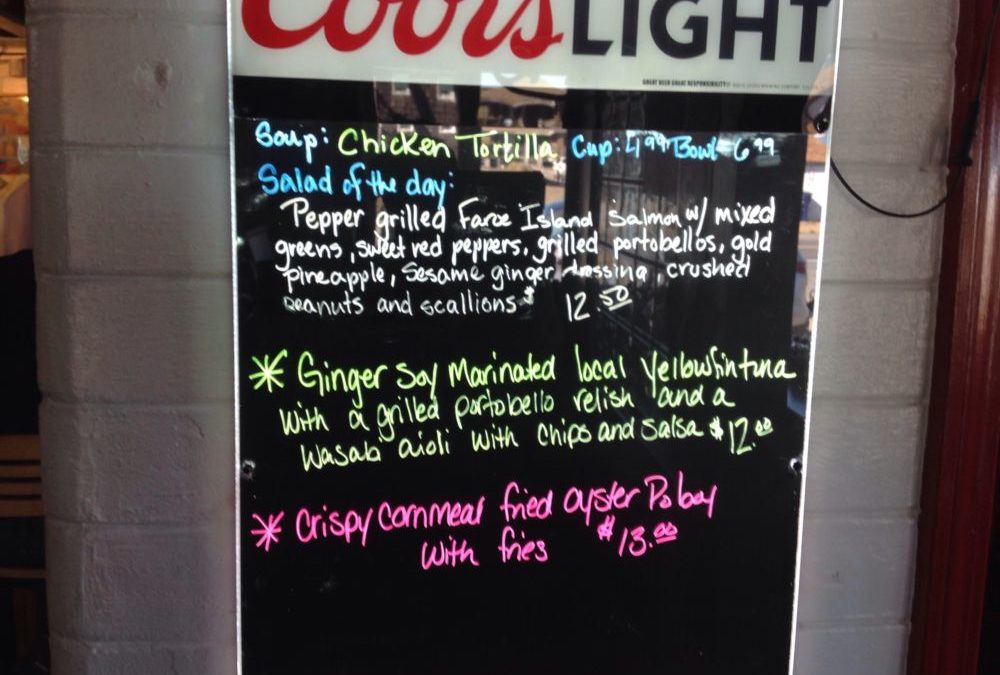 Coors LIGHT
GREAT BEER GREAT RESPONSIBILITY
Soup: Chicken Tortilla Cup: 4.99 Bowl 6.99
Salad of the day:
Pepper grilled Faroe Island Salmon w/ mixed
greens, sweet red peppers, grilled portobellos, gold
pineapple, Sesame ginger dressing, crushed
peanuts and scallions $ 12.50
* Ginger Soy Marinated local Yellowfin tuna
with a grilled portobello relish and a
wasabi aioli with chips and salsa $12.00
* Crispy Cornmeal fried oyster Po boy
with fries $13.00